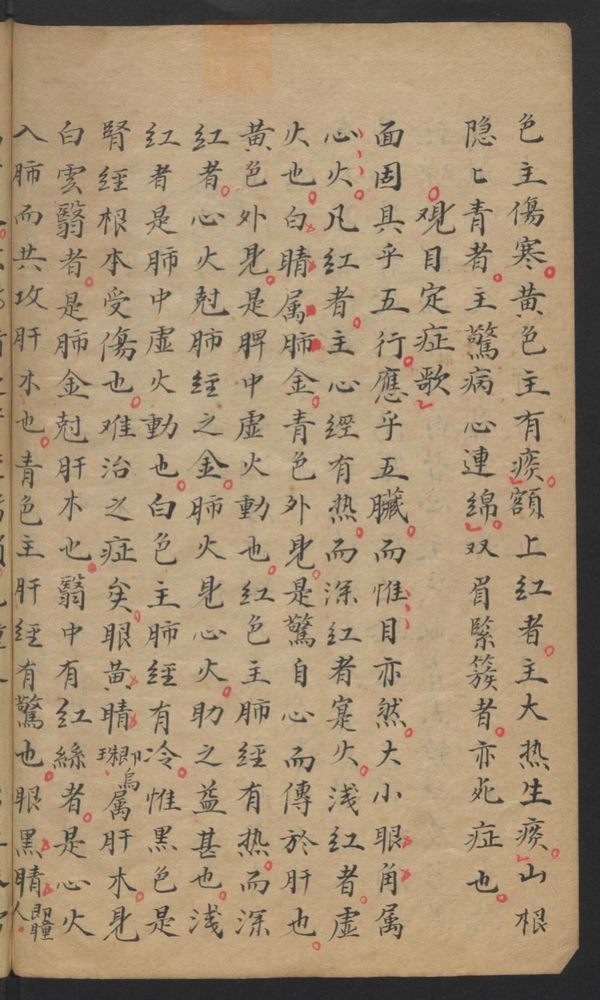 色主傷寒黄色主有痰額上红者主大热生痰山根
隐匕青者主驚病心連綿双眉緊簇者亦死症也
覌目定症歌
面固具乎五行應乎五臟而惟目亦然大小眼角属
心火凡红者主心經有热而深红者寔火浅红者虚
火也白睛属肺金青色外見是驚自心而傳於肝也
黄色外見是脾中虚火動也红色主肺經有热而深
红者心火尅肺經之金肺火見心火助之益甚也浅
红者是肺中虚火動也白色主肺經有冷惟黑色是
腎經根本受傷也难治之症矣眼黄睛即烏珠属肝木見
白雲翳者是肺金尅肝木也翳中有红絲者是心火
入肺而共攻肝木也青色主肝經有驚也眼黑睛即瞳人